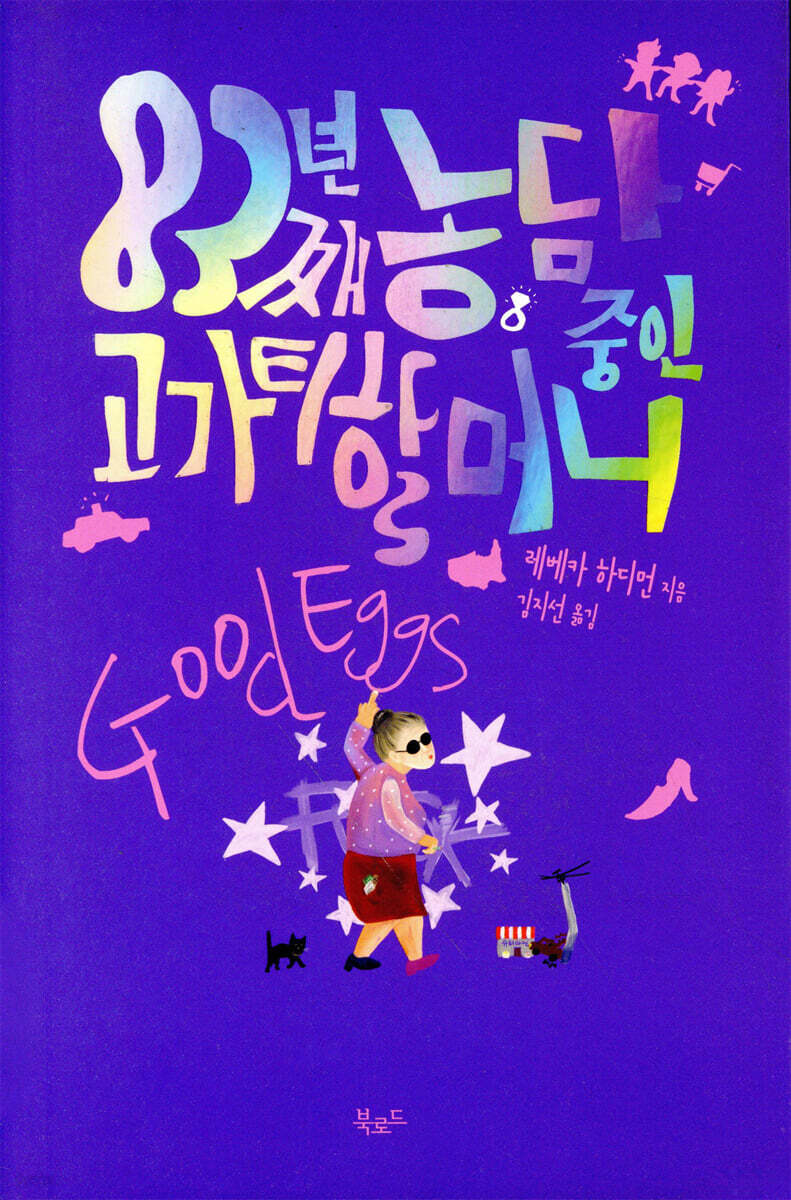 83년째 농담 중인
고가티 할머니
레베카 하디먼 지음
김지선 옮김
Good Eggs
슈퍼마켓
북로드